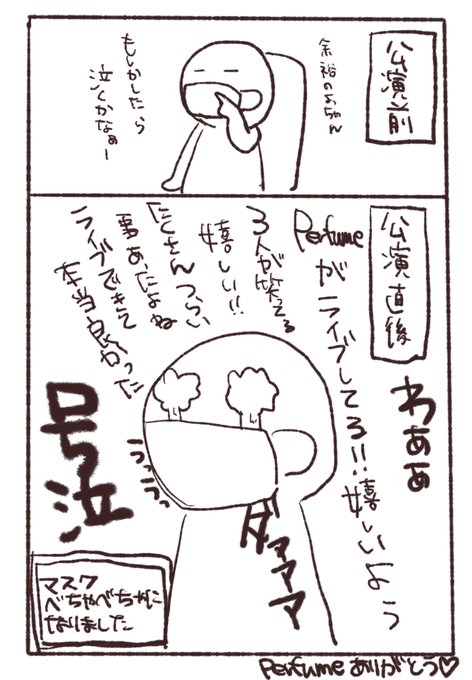 公演前
余裕のあちゃん
もしかしたら
泣くかなぁー
公演直後
わぁぁ
Perfumeがライブしてる!!嬉しいよう
3人が笑ってる
嬉しい!!
たくさんつらい
事あったよね
ライブできて
本当良かった
うっうっ
ダァァァァ
号泣
マスク
べちゃべちゃに
なりました
Perfumeありがとう♡